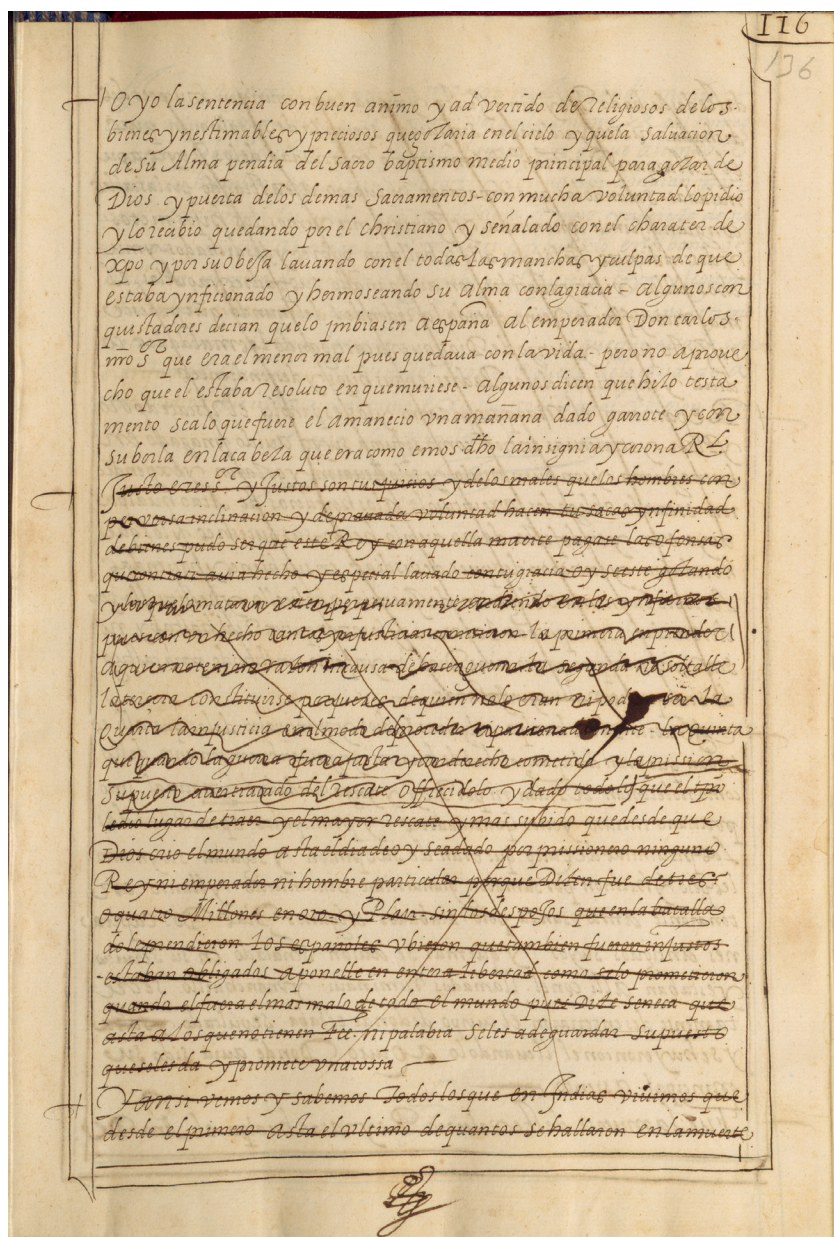 116
136
Oyo la sentencia con buen animo y advertido de religiosos de los
bienes ynestimables y preciosos que gozaria en el cielo y que la salvacion
de su Alma pendia del sacro baptismo medio principal para gozar de
Dios y puerta delos demas Sacramentos - con mucha voluntad lo pidio
y lo recibio quedando por el christiano y señalado con el charater de
xpo y por su obeja lavando con el todas las manchas y culpas de que
estaba ynficionado y hermoseando su Alma con la gracia - Algunos con
quistadores decian que lo ymbiasen a españa al emperador Don carlos
nro sor que era el menor mal pues quedava con la vida - pero no aprove
cho que el estaba resoluto en que muriese - Algunos dicen que hizo testa
mento sea lo que fuere el amanecio una mañana dado garrote y con
su borla en la cabeza que era como emos dho la insignia y corona Rl.
Justo eres sor y Justos son tus juicios y de los males que los hombres con
perversa inclinacion y depravada voluntad hacen tu sacas ynfinidad
de bienes pudo ser que este Rey con aquella muerte pagase las ofensas
que contra ti avia hecho y especial lavado con tu gracia oy se este gozando
y los que lo mataron esten perpetuamente ardiendo en los ynfiernos
la primera en prender
a quien no tenian razon ni causa de hacer guerra la segunda
la tercera constituirse por jueces de quien no lo eran ni podian la
Quarta la injusticia en el modo de proceder - la Quinta
que quando la guerra fuera justa y con derecho cometida y la prission
Supuesto Offrecidolo y dado todo lo que el tpo
le dio lugar de traer y el mayor rescate y mas subido que desde que
Dios crio el mundo asta el dia de oy se a dado por prissionero ninguno
Rey ni emperador ni hombre particular porque Dicen fue de tres
o quatro Millones en oro y Plata sin los despojos que en la batalla
do le prendieron los españoles ubieron que tambien fueron injustos
estaban obligados a ponelle en entera libertad como se lo prometieron
quando el fuera el mas malo de todo el mundo pues Dice Seneca que
asta a los que no tienen Fee ni palabra se les a de guardar Supuesto
que se les da y promete una cossa
Y ansi vemos y sabemos Todos los que en Indias vivimos que
desde el primero asta el ultimo de quantos se hallaron en la muerte